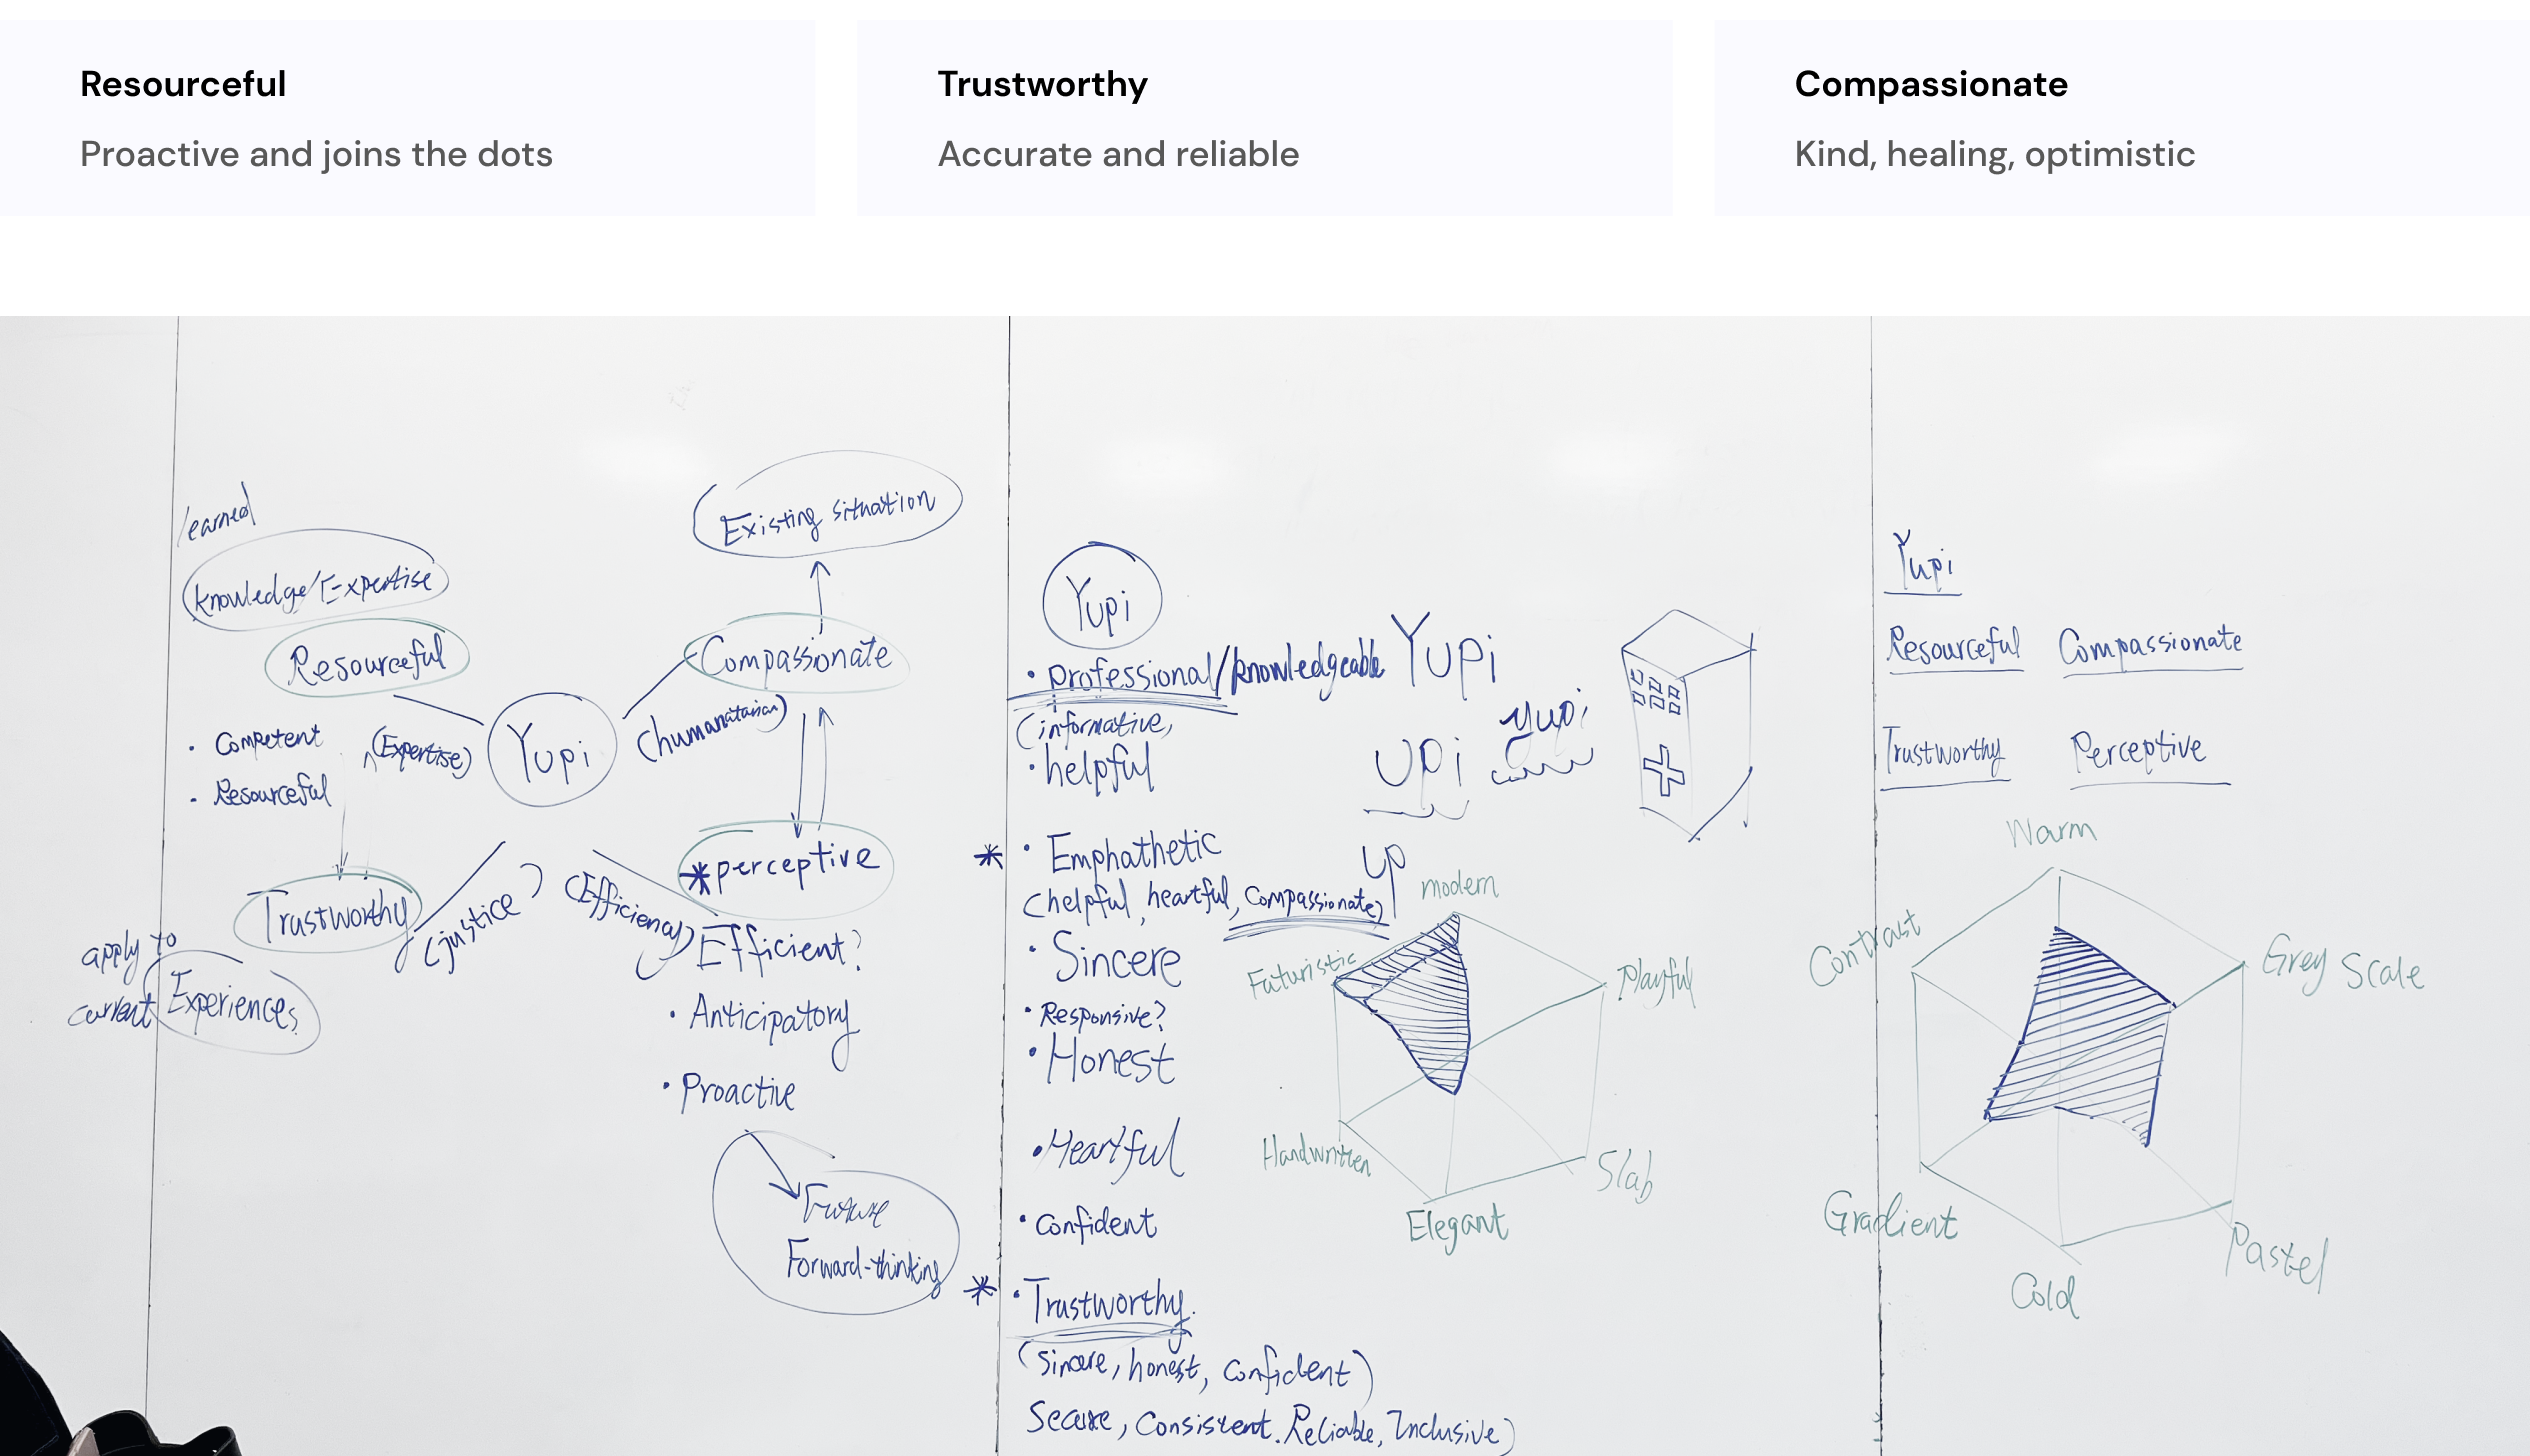 Resourceful
Proactive and joins the dots
Trustworthy
Accurate and reliable
Compassionate
Kind, healing, optimistic
learned
knowledge/Expertise
Resourceful
• Competent
(Expertise)
• Resourceful
Trustworthy
apply to
current Experiences
Yupi
Existing situation
Compassionate
(humanatarian)
*perceptive
(justice)
(Efficiency)
Efficient?
• Anticipatory
• Proactive
Future
Forward-thinking
Yupi
• professional/knowledgeable
(informative,
• helpful
* • Emphathetic
(helpful, heartful, Compassionate)
• Sincere
• Responsive?
• Honest
• Heartful
• Confident
* • Trustworthy.
(sincere, honest, confident)
Secure, Consistent. Reliable, Inclusive)
Yupi
yupi
UPi
up
modern
Futuristic
Playful
Handwritten
Slab
Elegant
Yupi
Resourceful Compassionate
Trustworthy Perceptive
Warm
Contrast
Grey Scale
Gradient
Pastel
Cold